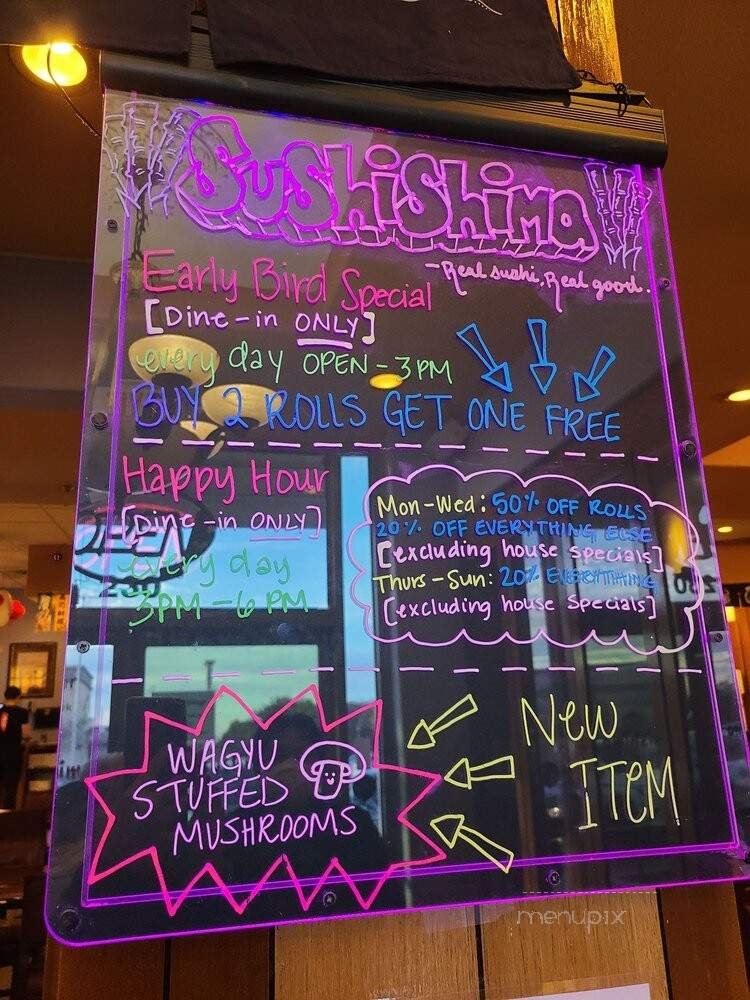 SuShiShiMa
-Real sushi, Real good.
Early Bird Special
[Dine-in ONLY]
every day OPEN-3PM
BUY 2 ROLLS GET ONE FREE
Happy Hour
[Dine-in ONLY]
every day
3PM-6PM
Mon-Wed: 50% OFF ROLLS
20% OFF EVERYTHING ELSE
[excluding house specials]
Thurs-Sun: 20% EVERYTHING
[excluding house specials]
WAGYU
STUFFED
MUSHROOMS
NeW
ITeM
menupix